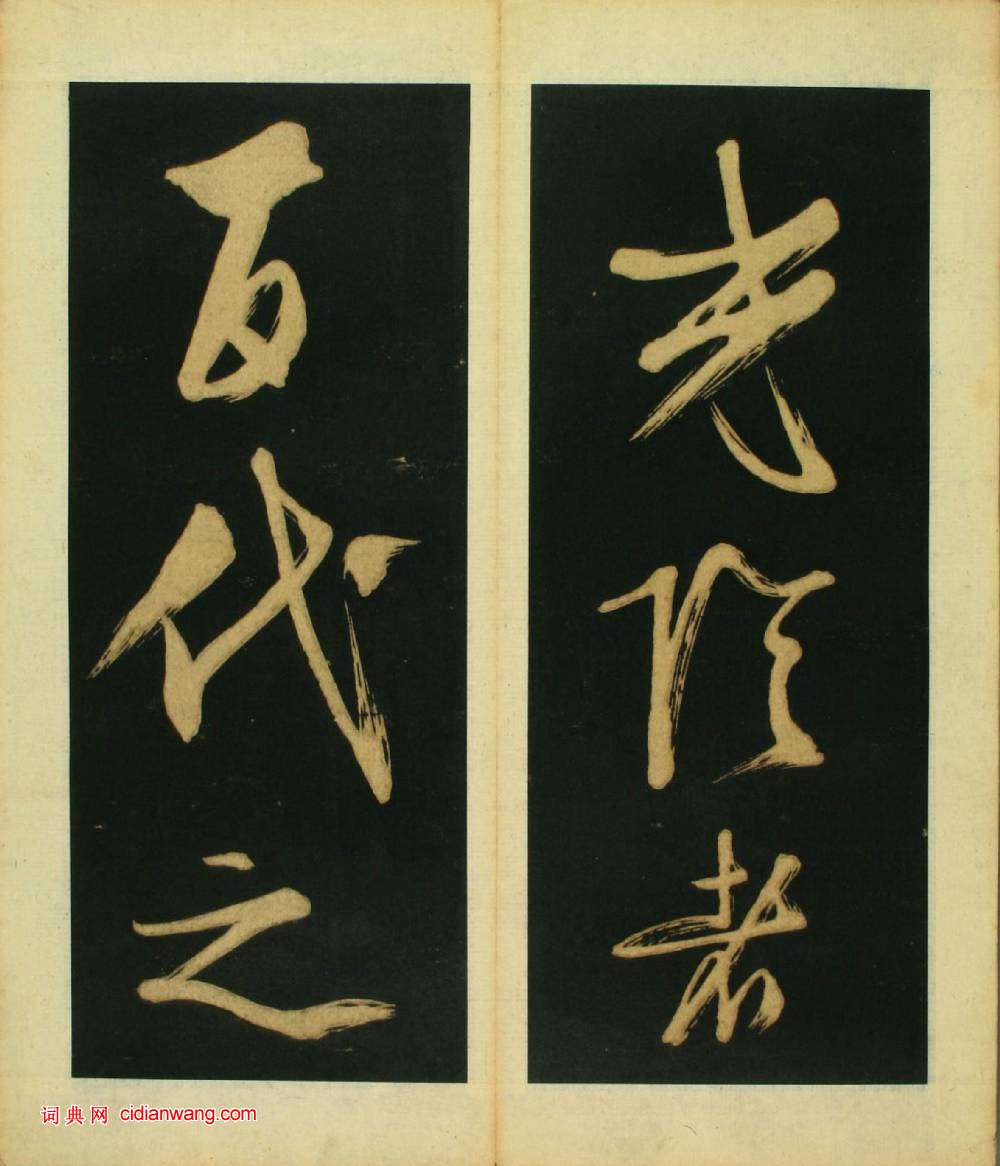 光陰者
百代之
词典网 cidianwang.com